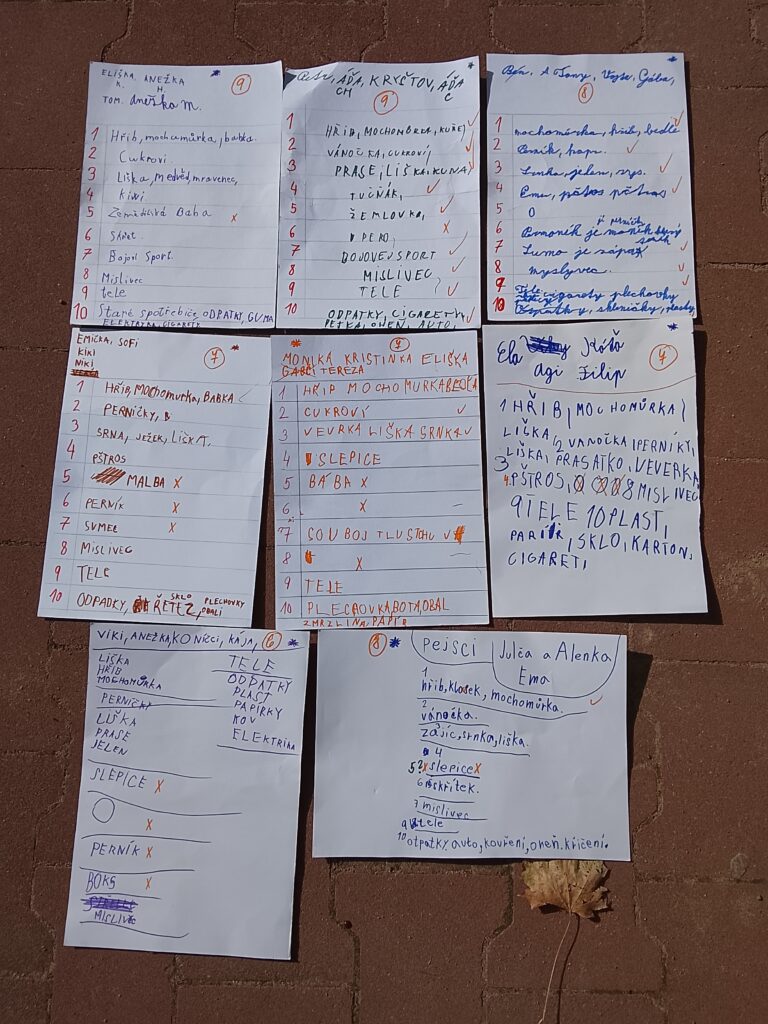 ELIŠKA, ANEŽKA
K. H.
TOM. aneška M.
9
1 Hřib, mochomůrka, babka.
2 Cukroví.
3 Liška, medvěd, mravenec,
4 kiwi
5 Zemědělská Baba x
6 Skřet.
7 Bojoví Sport.
8 Mislivec
9 tele
10 Staré spotřebiče, ODPATKY, GUMA
ELEKTRIKA, CIGARETY
Petr, ÁĎA, KRYČTOV, ÁĎA
CH C
9
1 HŘIB, MOCHOMŮRKA, KUŘE
2 VÁNOČKA, CUKROVÍ,
3 PRASE, LIŠKA, KUNA
4 TUČŇÁK,
5 ŽEMLOVKA,
6 PERO, x
7 BOJOVEJ SPORT
8 MISLIVEC
9 TELE
10 ODPATKY, CIGARETY
PETKA, OHEŇ, AUTO,
A Tony, Vojta,
8
1 mochomůrka, hřib, bedle
2 Perník, kapr.
3 jelen, rys.
4 Emu, pštros pštros
5 0
6 je
7 Sumo je zápas
8 myslyvec.
9 Tele
10 cigarety plechovky
skleničky, plasty
EMIČKA, SOFI
KIKI
NIKI
7
1 HŘIB, MOCHOMURKA, BABKA
2 PERNÍČKY, B
3 SRNA, JEŽEK, LIŠKA.
4 PŠTROS
5 MALBA x
6 PERNÍK x
7 SUMEC x
8 MISLIVEC
9 TELE
10 ODPADKY, ŘETEZ, SKLO PLECHOVKY
OBALI
MONIKA KRISTINKA ELIŠKA
GABČI TEREZA
7
1 HŘIP MOCHOMURKA BEDLA
2 CUKROVÍ
3 VEVRKA LIŠKA SRNKA
4 SLEPICE
5 BÁBA x
6 x
7 SOUBOJ TLUSTOCHU
8 x
9 TELE
10 PLECHOVKA BOTA, OBAL
ZMRZLINA, PAPÍR
Ela Káťa
Agi Filip
7
1 HŘIB, MOCHOMŮRKA,
LIŠKA, 2 VANOČKA, PERNÍKY,
LIŠKA, PRASATKO, VEVERKA
3
4. PŠTROS, 8 MISLIVEC
9 TELE 10 PLAST,
PAPIR, SKLO, KARTON,
CIGARETI,
VIKI, ANEŽKA, KONÍCCI, KÁJA,
6
LIŠKA
HŘIB
MOCHOMŮRKA
PERNÍČKI
LIŠKA
PRASE
JELEN
SLEPICE x
x
PERNÍK x
BOKS x
MISLIVEC
TELE
ODPATKY
PLAST
PAPÍRKY
KOV
ELEKTRIKA
8
PejSCi Julča a Alenka
Ema
1
hřib, klouzek, mochomůrka.
2
vánočka.
3
zajíc, srnka, liška.
4
5 x slepice x
6 skřítek.
7 mislivec
9 tele
10 otpatky auto, kouření, oheň. křičení.